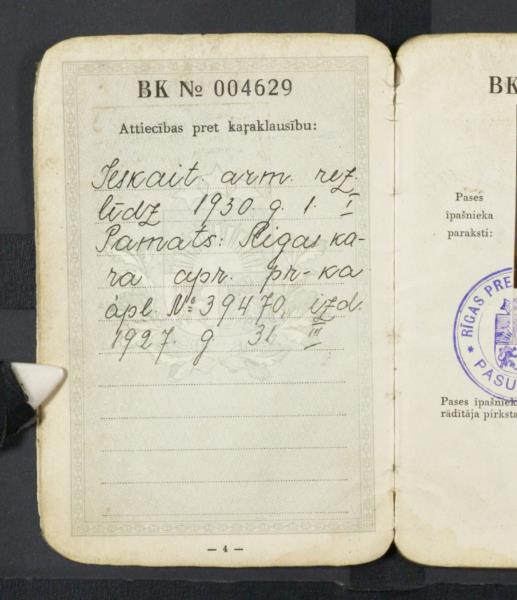 BK № 004629
Attiecības pret kaŗaklausību:
Ieskait. arm. rez.
līdz 1930. g. 1. I
Pamats: Rīgas ka-
ra apr. pr-ka
apl. № 39470, izd.
1927. g 31 III
— 4 —
BK
Pases
īpašnieka
paraksti:
RĪGAS PRE
PASU
Pases īpašniek
rādītāja pirksta